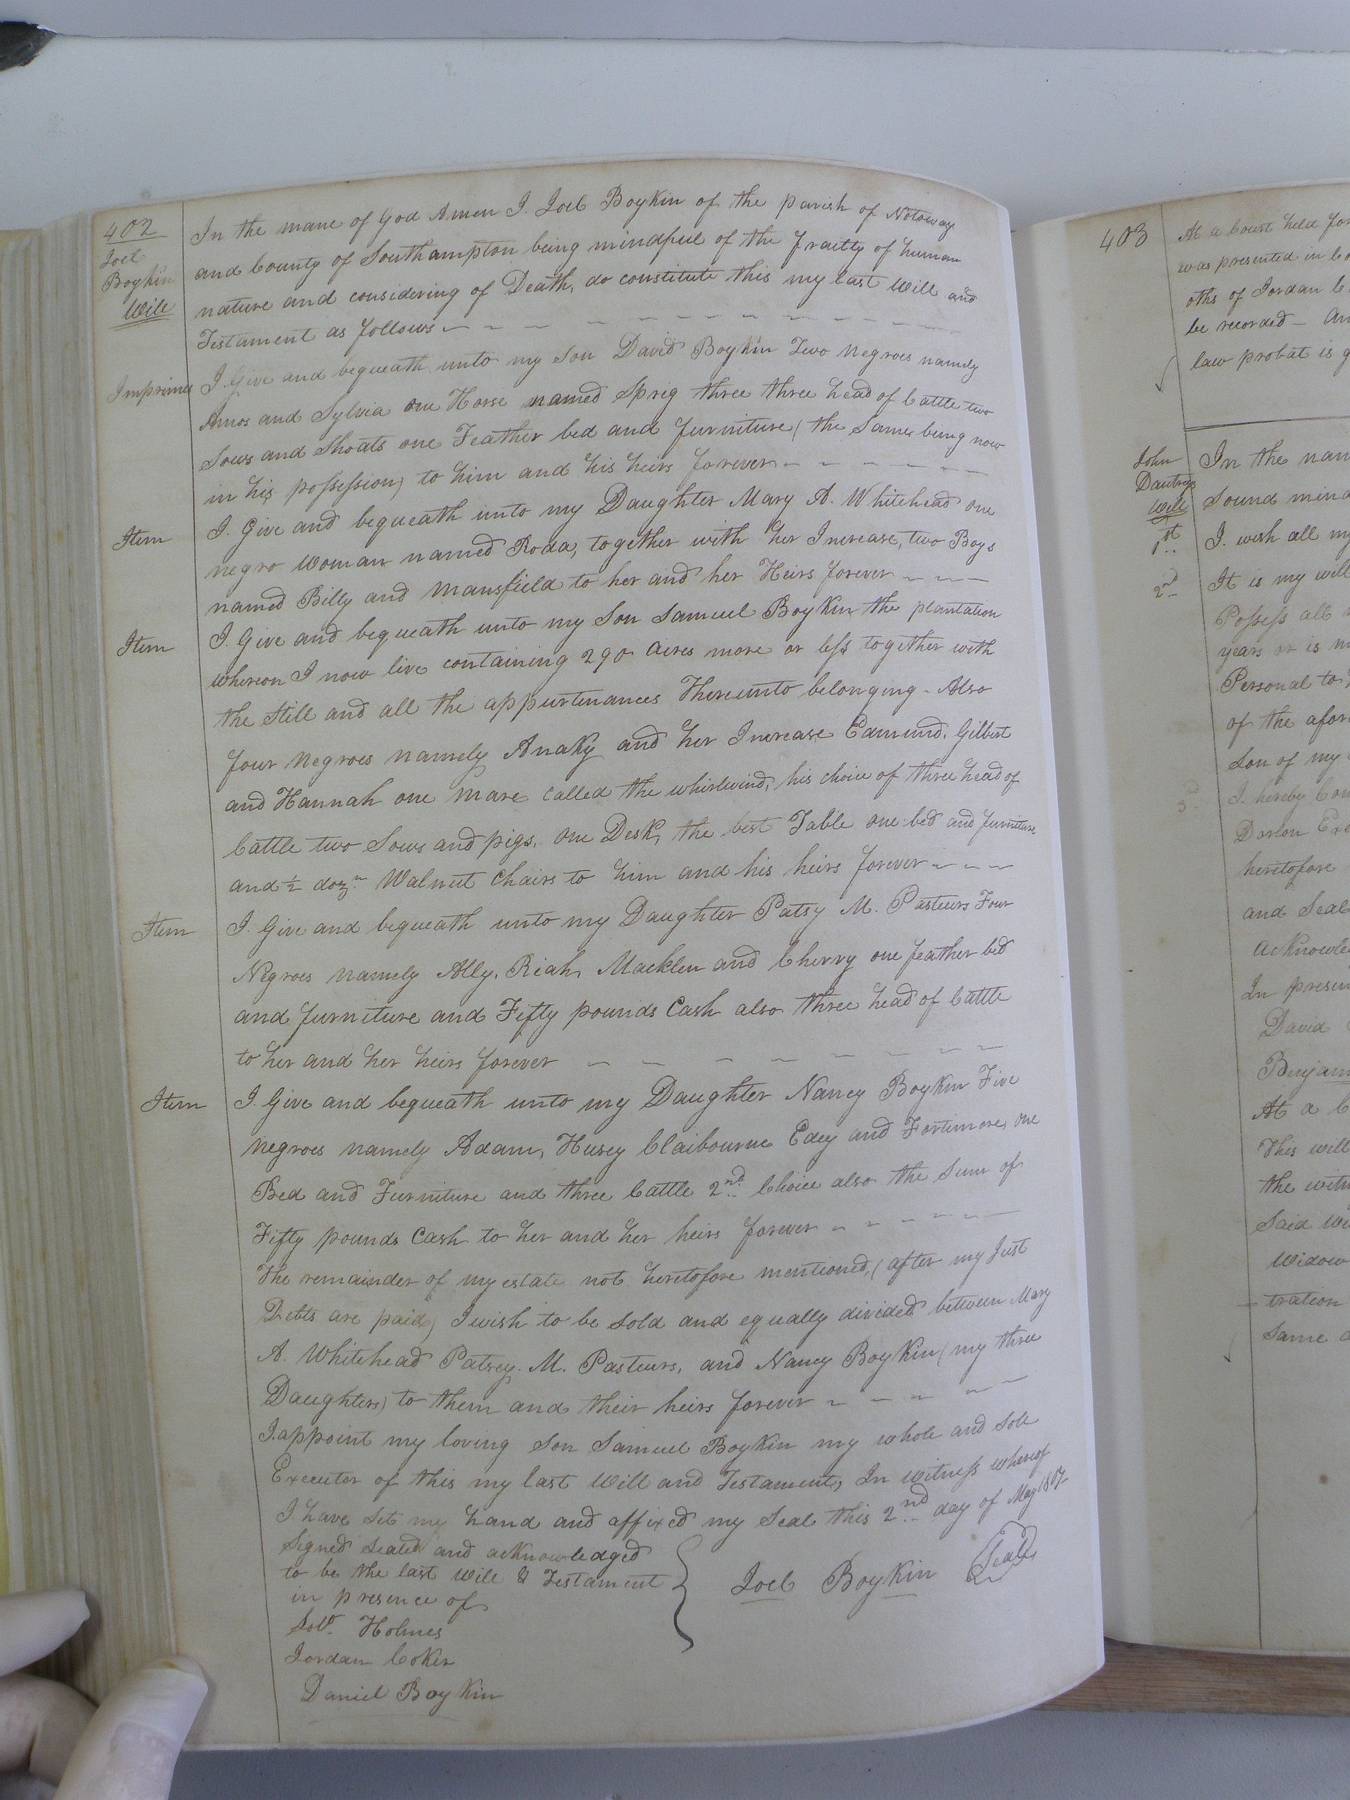 402
Joel
Boykin
Will
In the mane of God Amen I. Joel Boykin of the parish of Notoway
and County of Southampton being mindfuel of the frailty of human
nature and considering of Death, do constitute this my last Will and
Testament as follows
Imprimes I. Give and bequeath unto my Son David Boykin Two negroes namely
Amos and Sylvia one Horse named Sprig three three head of Cattle two
Sows and Shoats one Feather bed and furniture (the Same being now
in his possession) to him and his heirs forever
Item I. Give and bequeath unto my Daughter Mary A. Whitehead one
negro woman named Roda, together with her Increase, two Boys
named Billy and Mansfield to her and her Heirs forever
Item I. Give and bequeath unto my Son Samuel Boykin the plantation
whereon I now live containing 290 Acres more or less together with
the Still and all the appurtenances Thereunto belonging - Also
four negroes namely Anaky and her Increase Edmund, Gilbert
and Hannah one mare called the whirlwind, his choice of three head of
Cattle two Sows and pigs, one Desk, the best Table one bed and furniture
and ½ dozn Walnut Chairs to him and his heirs forever
Item I. Give and bequeath unto my Daughter Patsy M. Pasteurs Four
Negroes namely Ally, Riah, Macklen and Cherry one feather bed
and furniture and Fifty pounds Cash also three head of Cattle
to her and her heirs forever
Item I. Give and bequeath unto my Daughter Nancy Boykin Five
negroes namely Adam, Husey Claibourne Edey and Fortimore, one
Bed and Furniture and three Cattle 2nd Choice also the Sum of
Fifty pounds Cash to her and her heirs forever
The remainder of my estate not heretofore mentioned, (after my Just
Debts are paid) I wish to be Sold and equally divided between Mary
A. Whitehead Patsey. M. Pasteurs, and Nancy Boykin (my three
Daughters) to them and their heirs forever
I appoint my loving Son Samuel Boykin my whole and Sole
Executor of this my last Will and Testament, In witness whereof
I have Set my hand and affixed my Seal this 2nd day of May
Signed Sealed and acknowledged
to be the last Will & Testament
in presence of
Joel Boykin Seal
Solo. Holmes
Jordan Coker
Daniel Boykin
403
At a Court held for
was presented in Co
oths of Jordan C
be recorded - An
law probat is g
John
Dautrys
Will
In the nam
Sound mind
1st I. wish all my
2nd It is my will
Possess all
years or is m
Personal to
of the afor
Son of my
3d I. hereby Con
Exe
heretofore
and Seal
acknowle
In presen
David
Benjam
At a C
This will
the witn
Said Wi
Widow
tration
Same a